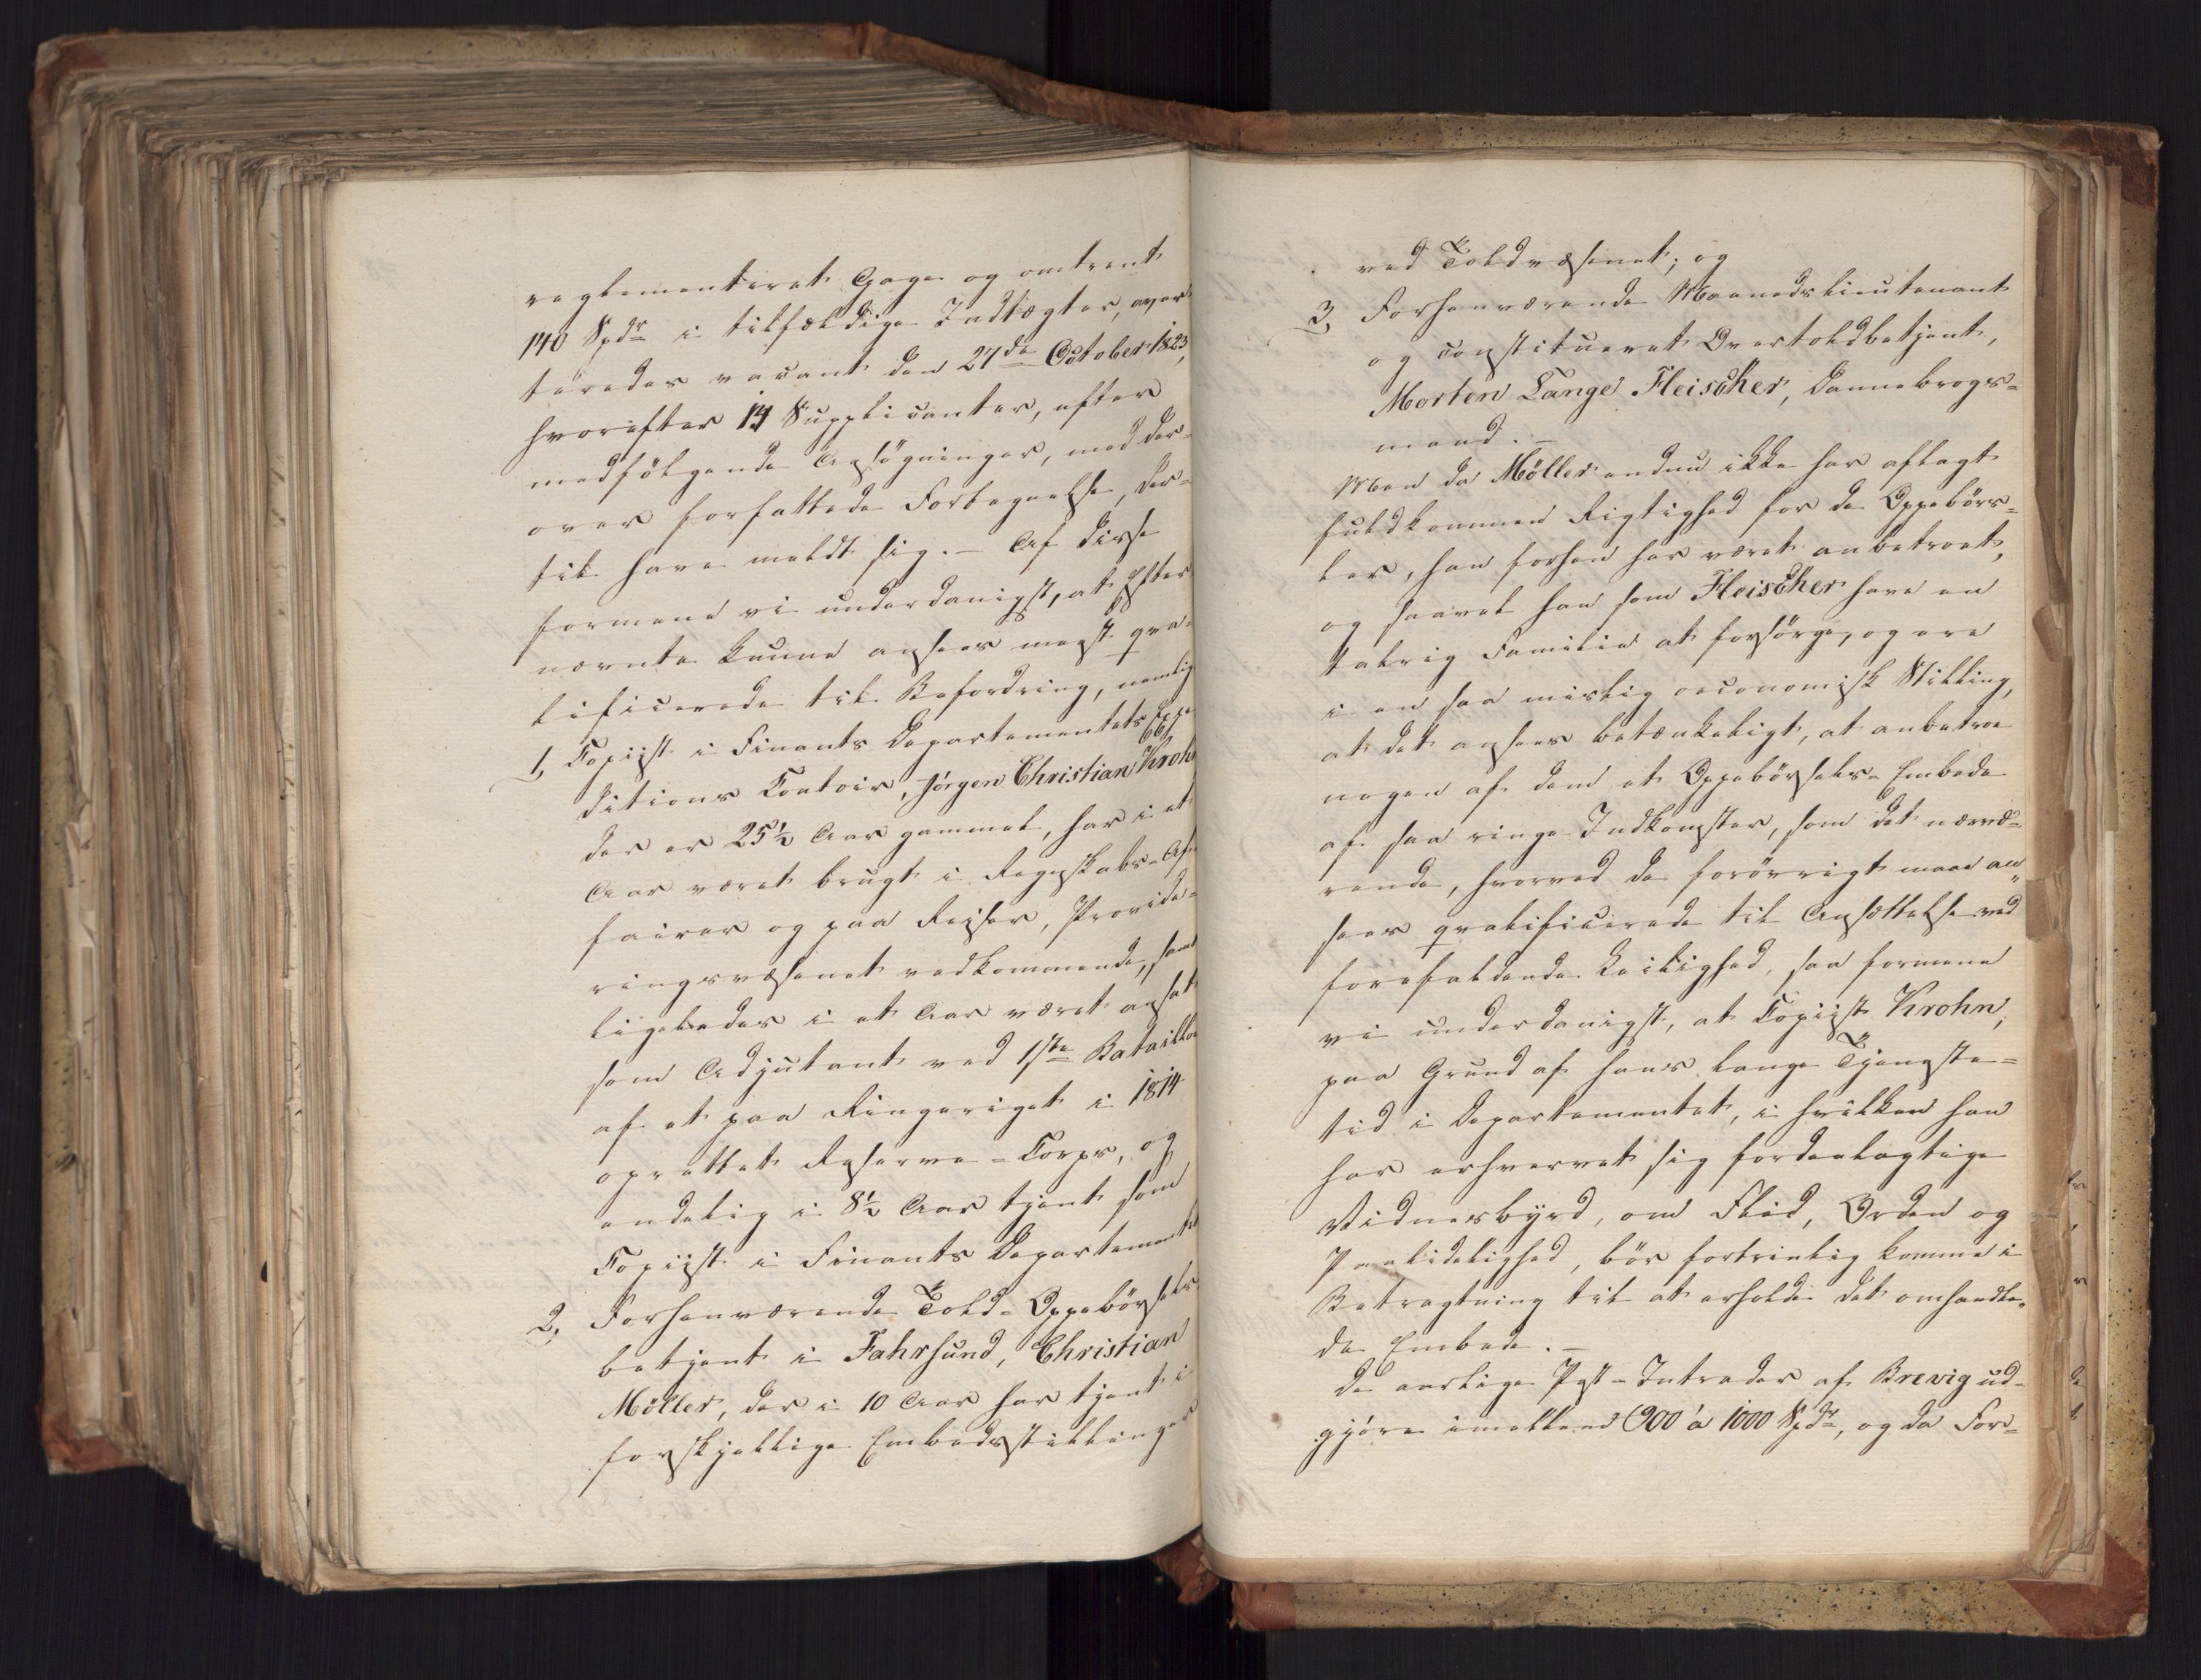 reglementeret Gage og omtrent
140 Spdr i tilfældige Indtægter, aver-
teredes vacant den 27de October 1823,
hvorefter 14 Supplicanter, efter
medfølgende Ansøgninger, med der-
over forfattede Forbegnelse, der-
til have meldt sig. – Af disse
formene vi underdanigst, at Efter-
nævnte kunne ansees meest qva-
lificerede til Befordring, nemlig
1, Copiist i Finants Departementets Expe-
ditions Contoir, Jørgen Christian Krohn
der er 25½ Aar gammel, har i et
Aar været brugt i Regnskabs-Af-
fairer og paa Reiser, Provide-
ringsvæsenet vedkommende, samt
ligeledes i et Aar været ansat
som Adjutant ved 1ste Bataillon
af et paa Ringeriget i 1814
oprettet Reserve-Corps, og
endelig i 8½ Aar tjent som
Copiist i Finants Departementet
2, Forhenværende Told-Oppebørsels-
betjent i Fahrsund, Christian
Möller, der i 10 Aar har tjent i
forskjellige Embedsstillinger
ved Toldvæsenet; og
3, Forhenværende Maanedslieutenant
og constitueret Overtoldbetjent,
Morten Lange Fleischer, Dannebrogs-
mand. –
Men da Möller endnu ikke har aflagt
fuldkommen Rigtighed for de Oppebørs-
ler, han forhen har været anbetroet,
og saavel han som Fleischer have en
talrig Familie at forsørge, og ere
i en saa mislig oeconomisk Stilling,
at det ansees betænkeligt, at anbetroe
nogen af dem et Oppebørsels-Embede
af saa ringe Indkomster, som det nærvæ-
rende, hvorved de forøvrigt maae an-
sees qvalificerede til Ansættelse ved
forefaldende Leilighed, saa formene
vi underdanigst, at Copiist Krohn,
paa Grund af hans lange Tjeneste-
tid i Departementet, i hvilken han
har erhvervet sig fordeelagtige
Vidnesbyrd, om Flid, Orden og
Paalidelighed, bør fortrinlig komme i
Betragtning til at erholde det omhandle-
de Embede. –
De aarlige Post-Intrader af Brevig ud-
gjøre imellem 900 à 1000 Spdr, og da For-